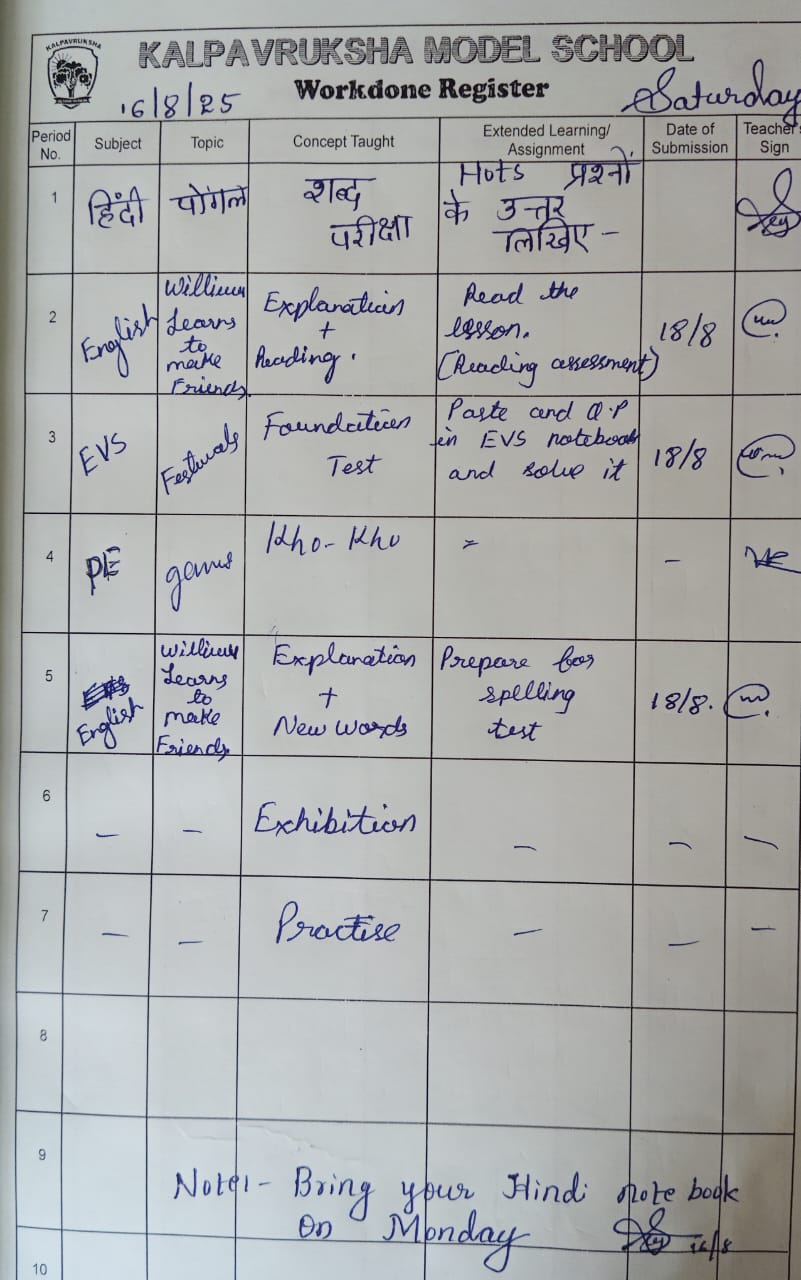 KALPAVRUKSHA
KALPAVRUKSHA MODEL SCHOOL
Workdone Register
16/8/25 Saturday
Period No. Subject Topic Concept Taught Extended Learning/ Assignment Date of Submission Teacher's Sign
1 हिंदी पोंगल शब्द परीक्षा Hots प्रश्नों के उत्तर लिखिए -
2 English William Learns to make Friends Explanation + Reading. Read the lesson. (Reading assessment) 18/8
3 EVS Festivals Foundation Test Paste and Q.P in EVS notebook and solve it 18/8
4 PE game Kho-Kho -
5 English William Learns to make Friends Explanation + New words Prepare for spelling test 18/8.
6 - - Exhibition - - -
7 - - Practise - - -
8
9
Note:- Bring your Hindi note book
On Monday 16/8
10